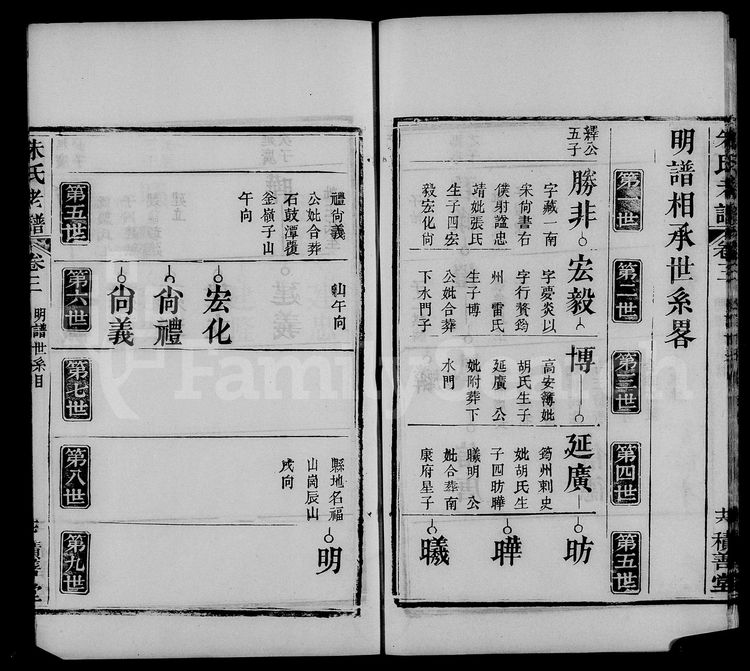 朱氏老譜 卷三
積善堂
明譜相承世系畧
第一世
第二世
第三世
第四世
第五世
繹公
五子
勝非
字藏一南
宋尚書右
僕射諡忠
靖妣張氏
生子四宏
毅宏化向
宏毅
字慶炎以
字行贅筠
州 雷氏
生子博
公妣合葬
下水門子
博
高安簿妣
胡氏生子
延廣 公
妣附葬下
水門
延廣
筠州刺史
妣胡氏生
子四昉曄
曦明 公
妣合葬南
康府星子
昉
曄
曦
禮尙義
公妣合葬
石鼓潭覆
釜嶺子山
午向
山午向
縣地名福
山崗辰山
戌向
宏化
尙禮
尙義
明
第五世
第六世
第七世
第八世
第九世
朱氏老譜 卷三 明譜世系目
積善堂
FamilySearch